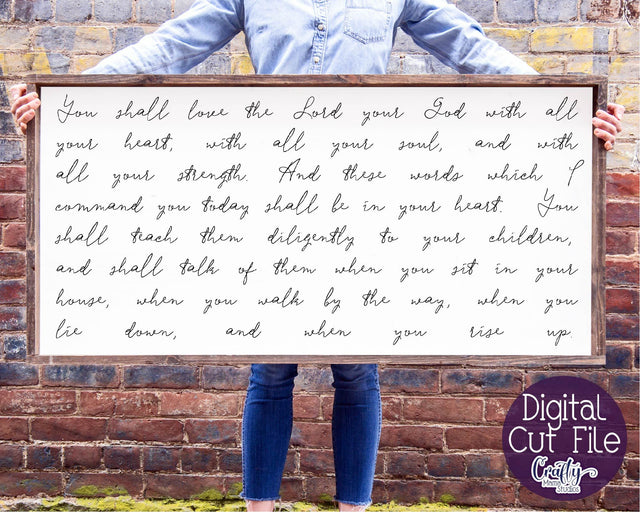 You shall love the Lord your God with all
your heart, with all your soul, and with
all your strength. And these words which I
command you today shall be in your heart. You
shall teach them diligently to your children,
and shall talk of them when you sit in your
house, when you walk by the way, when you
lie down, and when you rise up.
Digital
Cut File
Crafty
Mama
Studios